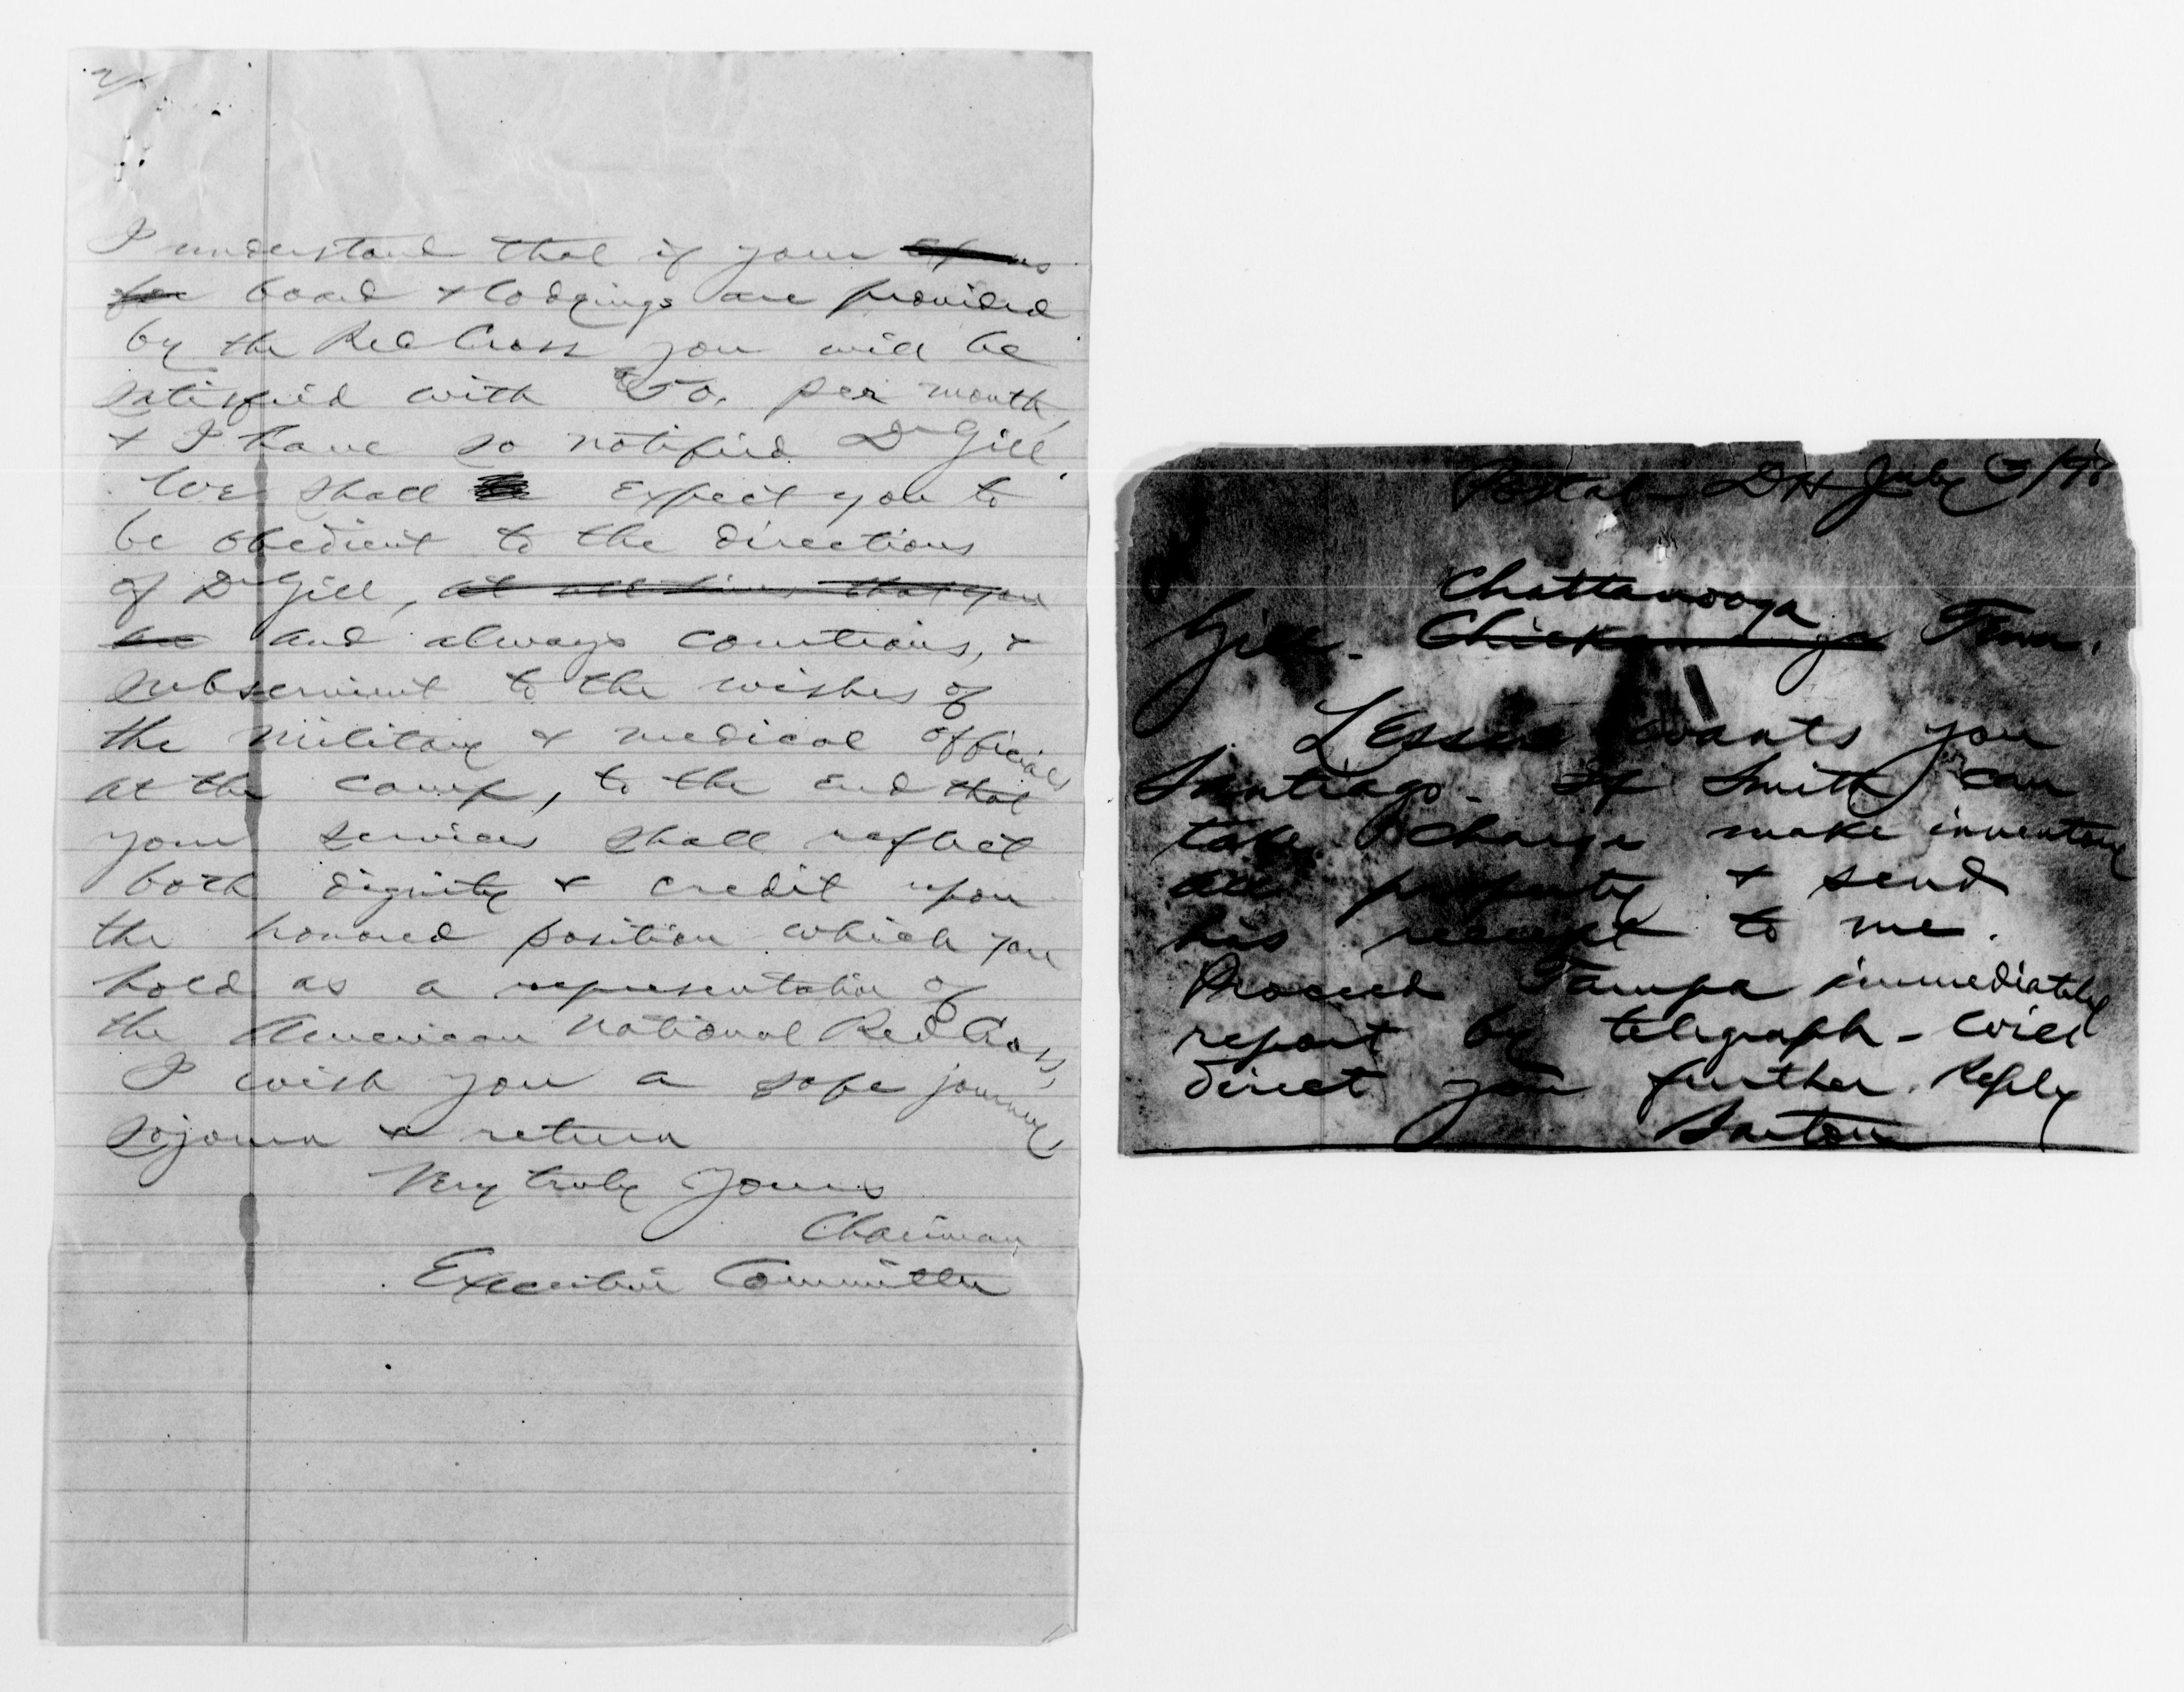 2/
I understand that if your
for board & lodgings are provided
by the Red Cross you will be
satisfied with $50. per month,
& I have so notified Dr Gill.
We shall expect you to
be obedient to the directions
of Dr Gill, at all times that you
be and always courteous, &
subservient to the wishes of
the military & medical officials
at the camp, to the end that
your services shall reflect
both dignity & credit upon
the honored position which you
hold as a representative of
the American National Red Cross,
I wish you a safe journey,
sojourn & return
Very truly yours
Chairman
Executive Committee
Postal - DH July 3/98
Chattanooga
Gill - Chickamauga Tenn.
Lesser wants you
Santiago - If Smith can
take charge make inventory
all property & send
his receipt to me.
Proceed Tampa immediately
report by telegraph - will
direct you further. Reply
Barton